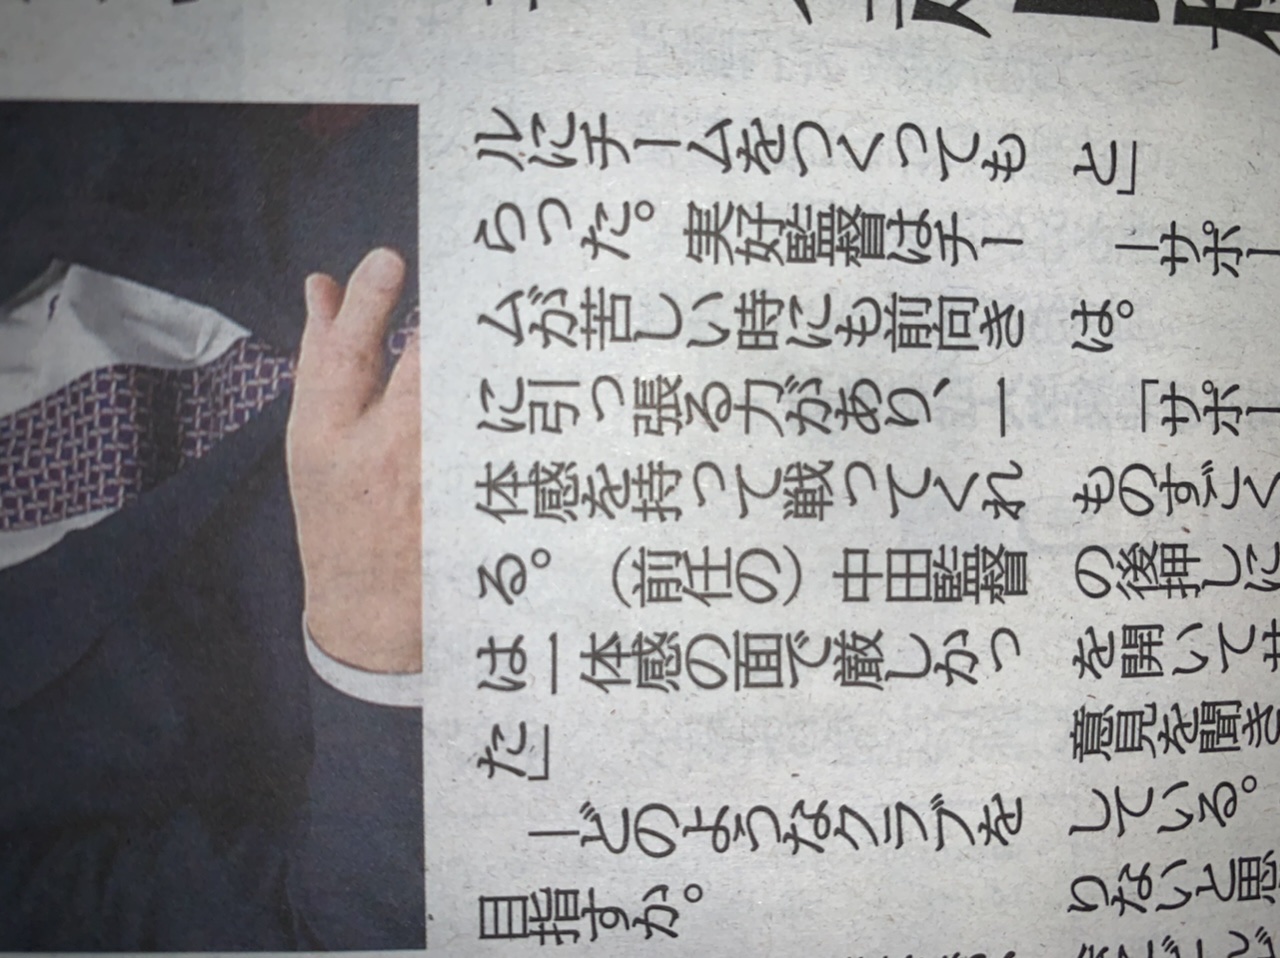 ルにチームをつくっても
らった。実好監督はチー
ムが苦しい時にも前向き
に引っ張る力があり、一
体感を持って戦ってくれ
る。（前任の）中田監督
は一体感の面で厳しかっ
た」
―どのようなクラブを
目指すか。
と」
―サポー
は。
「サポー
ものすごく
の後押しに
を開いて
意見を聞き
している。
りないと思